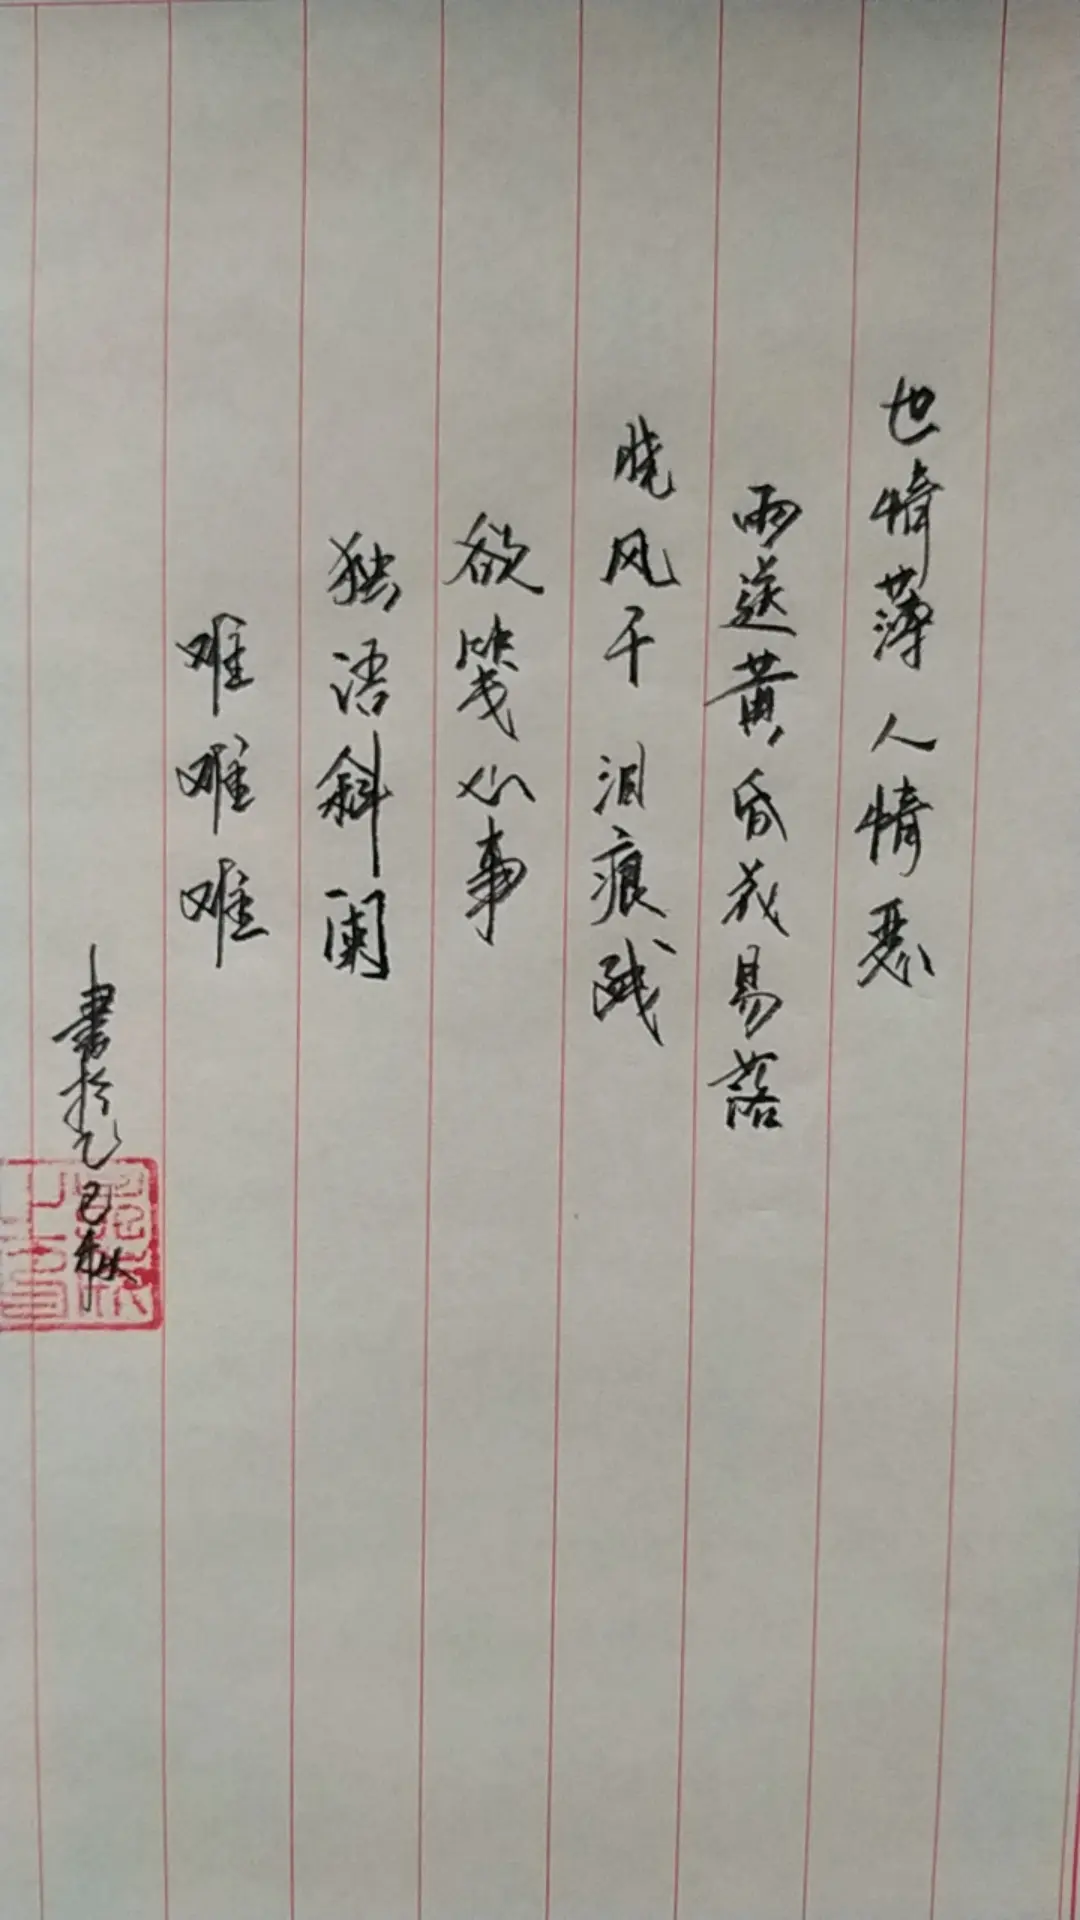 世情薄人情恶
雨送黄昏花易落
晓风干泪痕残
欲笺心事
独语斜阑
难难难
書於乙巳秋